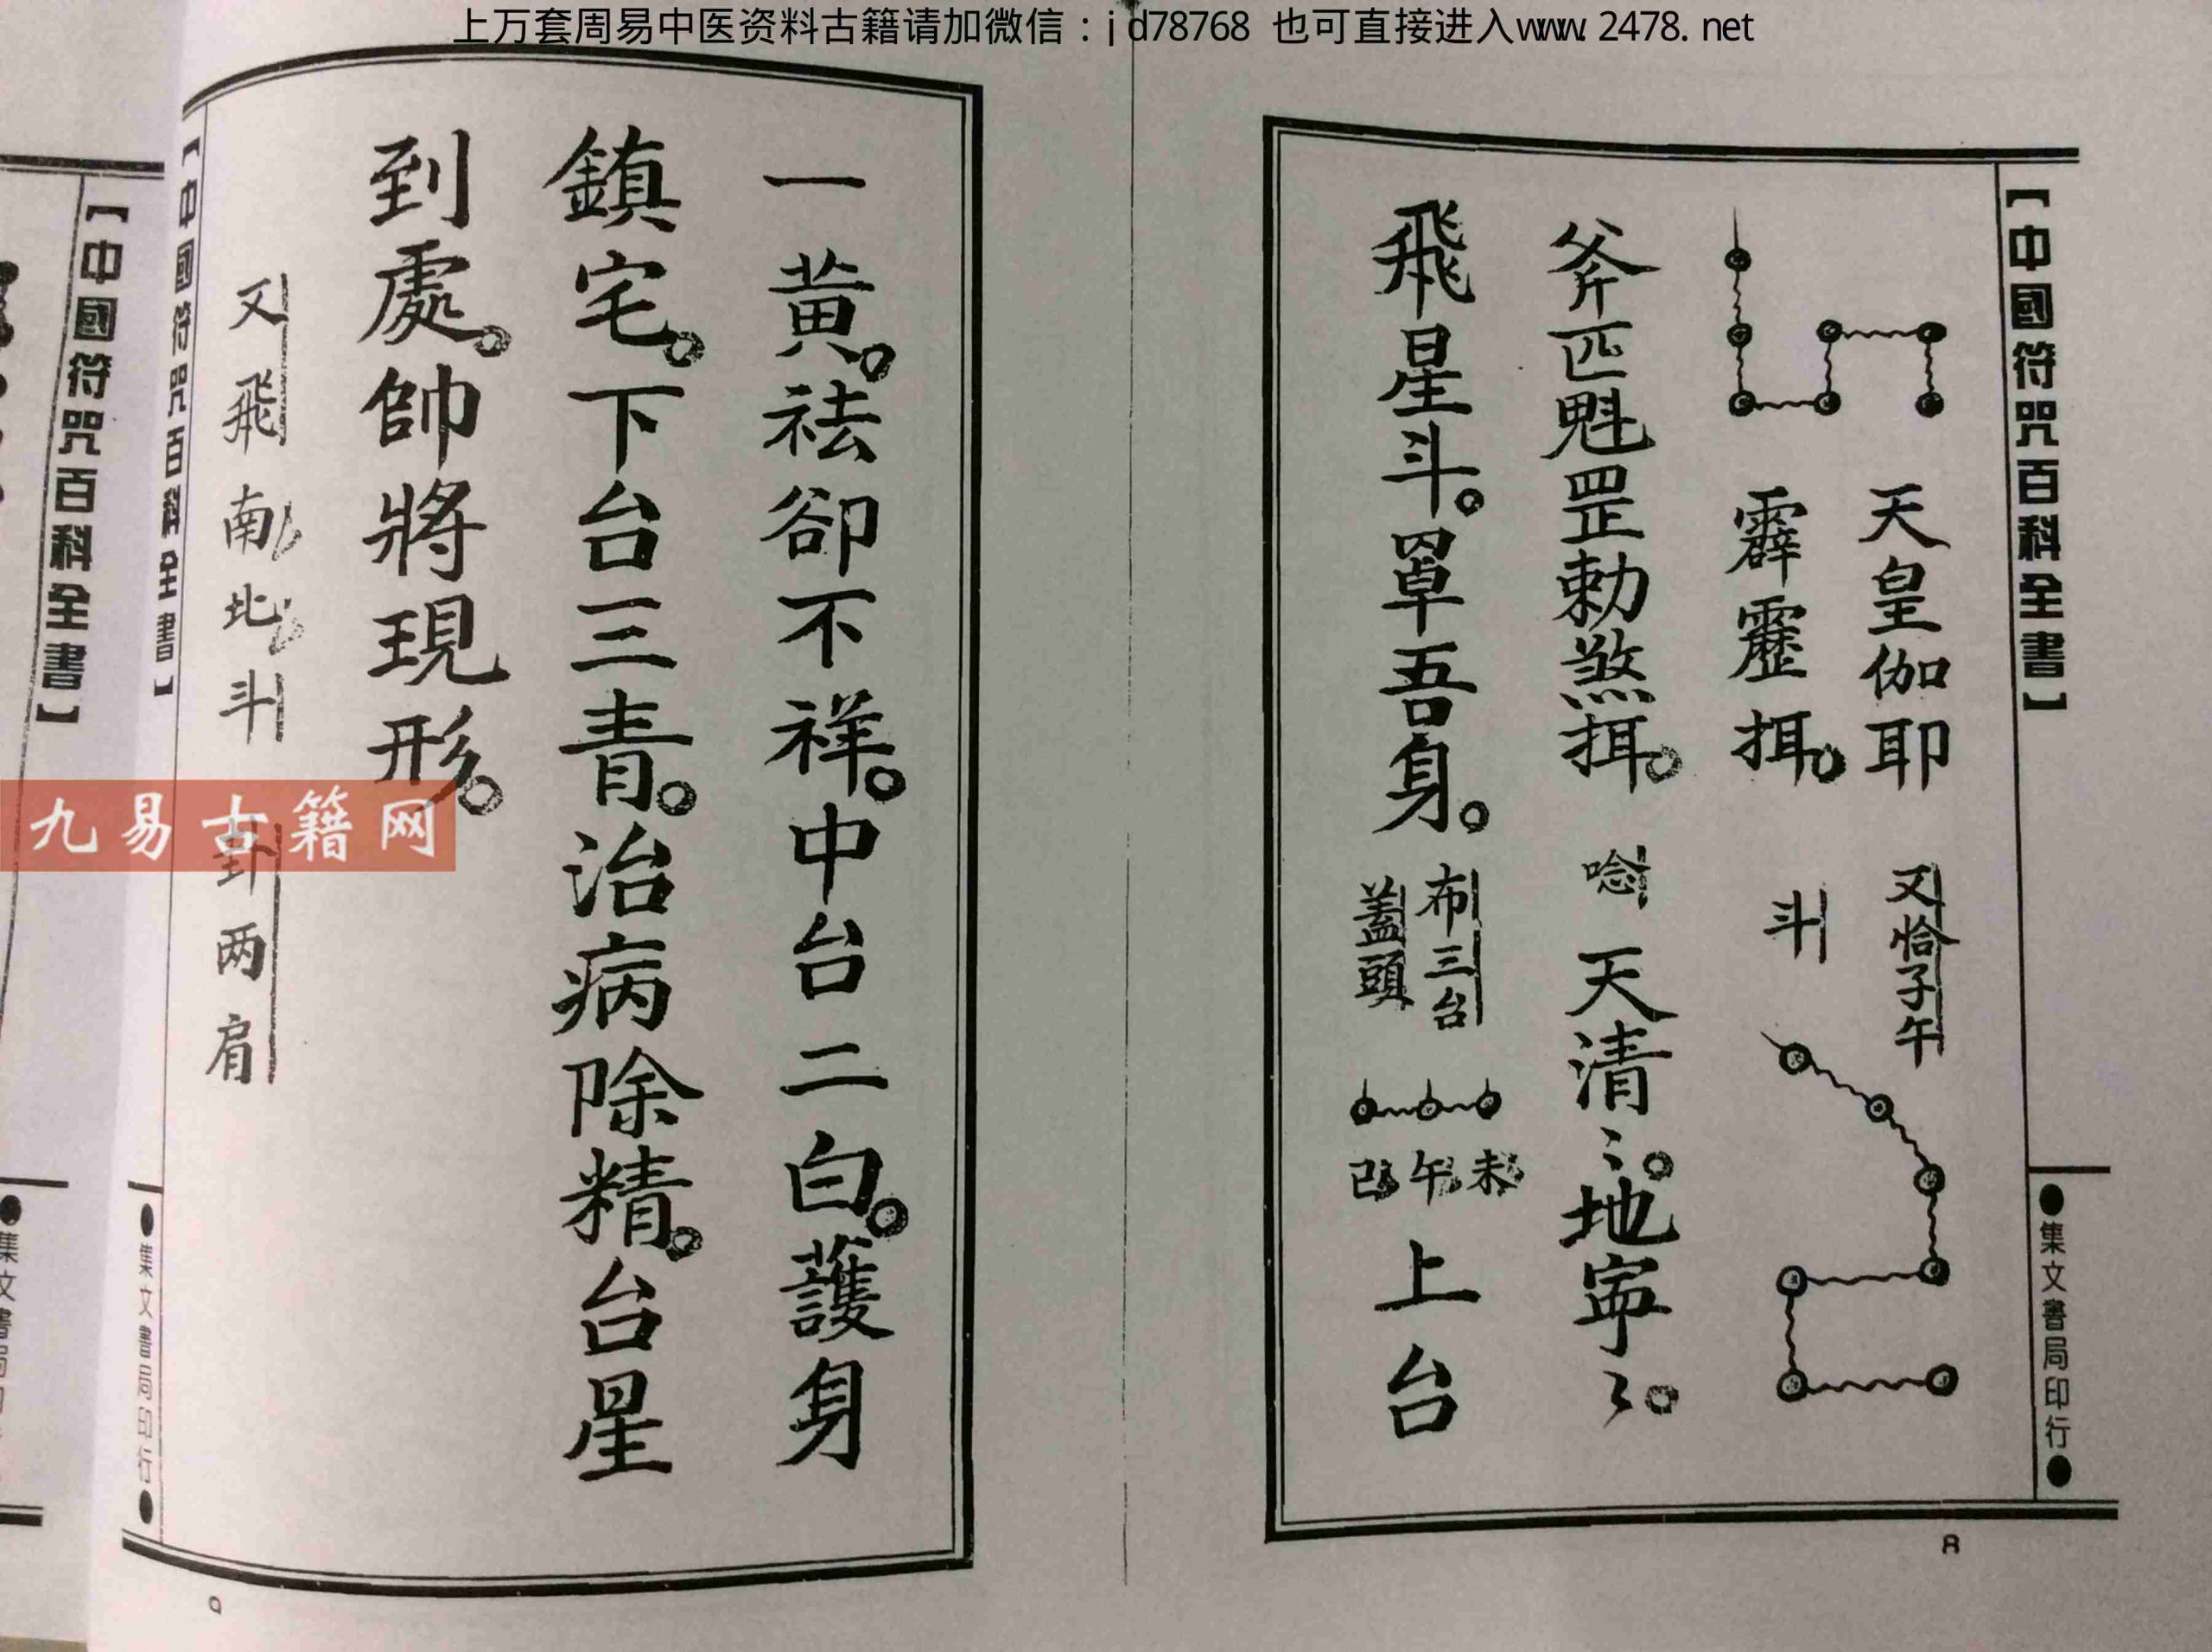 上万套周易中医资料古籍请加微信：jd78768 也可直接进入www.2478.net
【中國符咒百科全書】
●集文書局印行●
天皇伽耶 又恰子午
霹靂挕。斗
斧匹魁罡勅煞挕。唸 天清〻。地寍〻。
飛星斗。罩吾身。布三台
蓋頭
未 午 巳
上台
8
一黃。祛卻不祥。中台二白。護身
鎮宅。下台三青。治病除精。台星
到處。帥將現形。
又飛南北斗 卦两肩
【中國符咒百科全書】
●集文書局印行●
9
【中國符咒百科全書】
九易古籍网